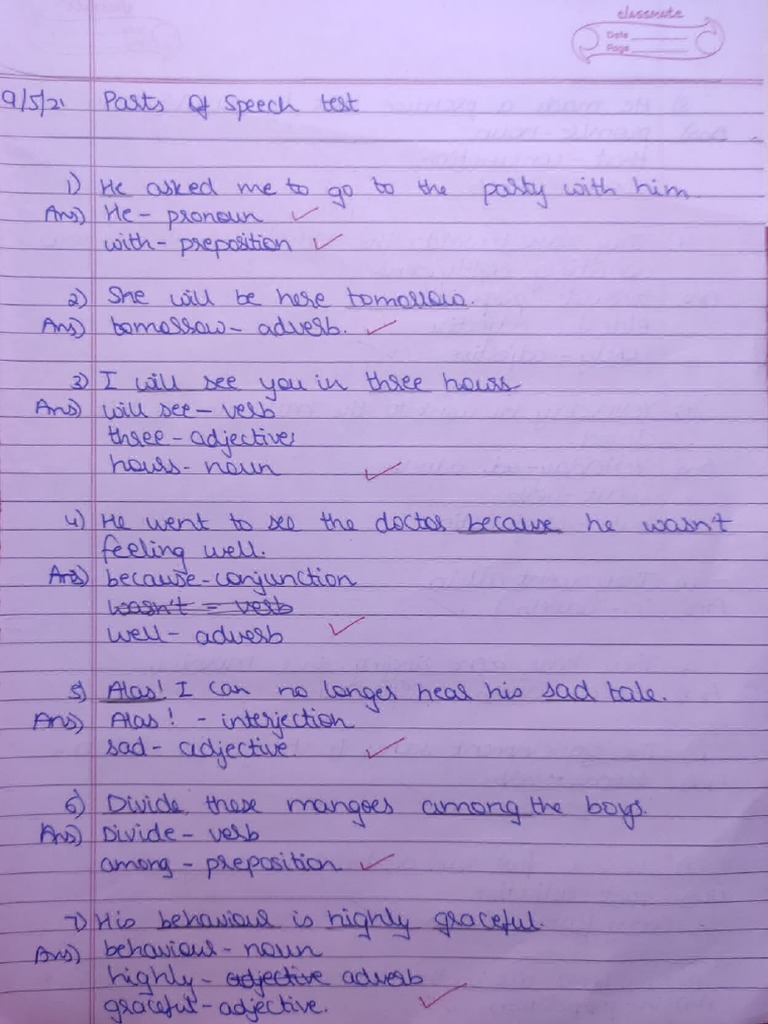 classmate
Date
Page
9/5/21 Parts Of Speech test
1) He asked me to go to the party with him.
Ans) He - pronoun
with - preposition
2) She will be here tomorrow.
Ans) tomorrow - adverb.
3) I will see you in three hours
Ans) will see - verb
three - adjective
hours - noun
4) He went to see the doctor because he wasn't
feeling well.
Ans) because - conjunction
wasn't = verb
well - adverb
5) Alas! I can no longer hear his sad tale.
Ans) Alas! - interjection
sad - adjective.
6) Divide these mangoes among the boys.
Ans) Divide - verb
among - preposition
7) His behaviour is highly graceful.
Ans) behaviour - noun
highly - adjective adverb
graceful - adjective.